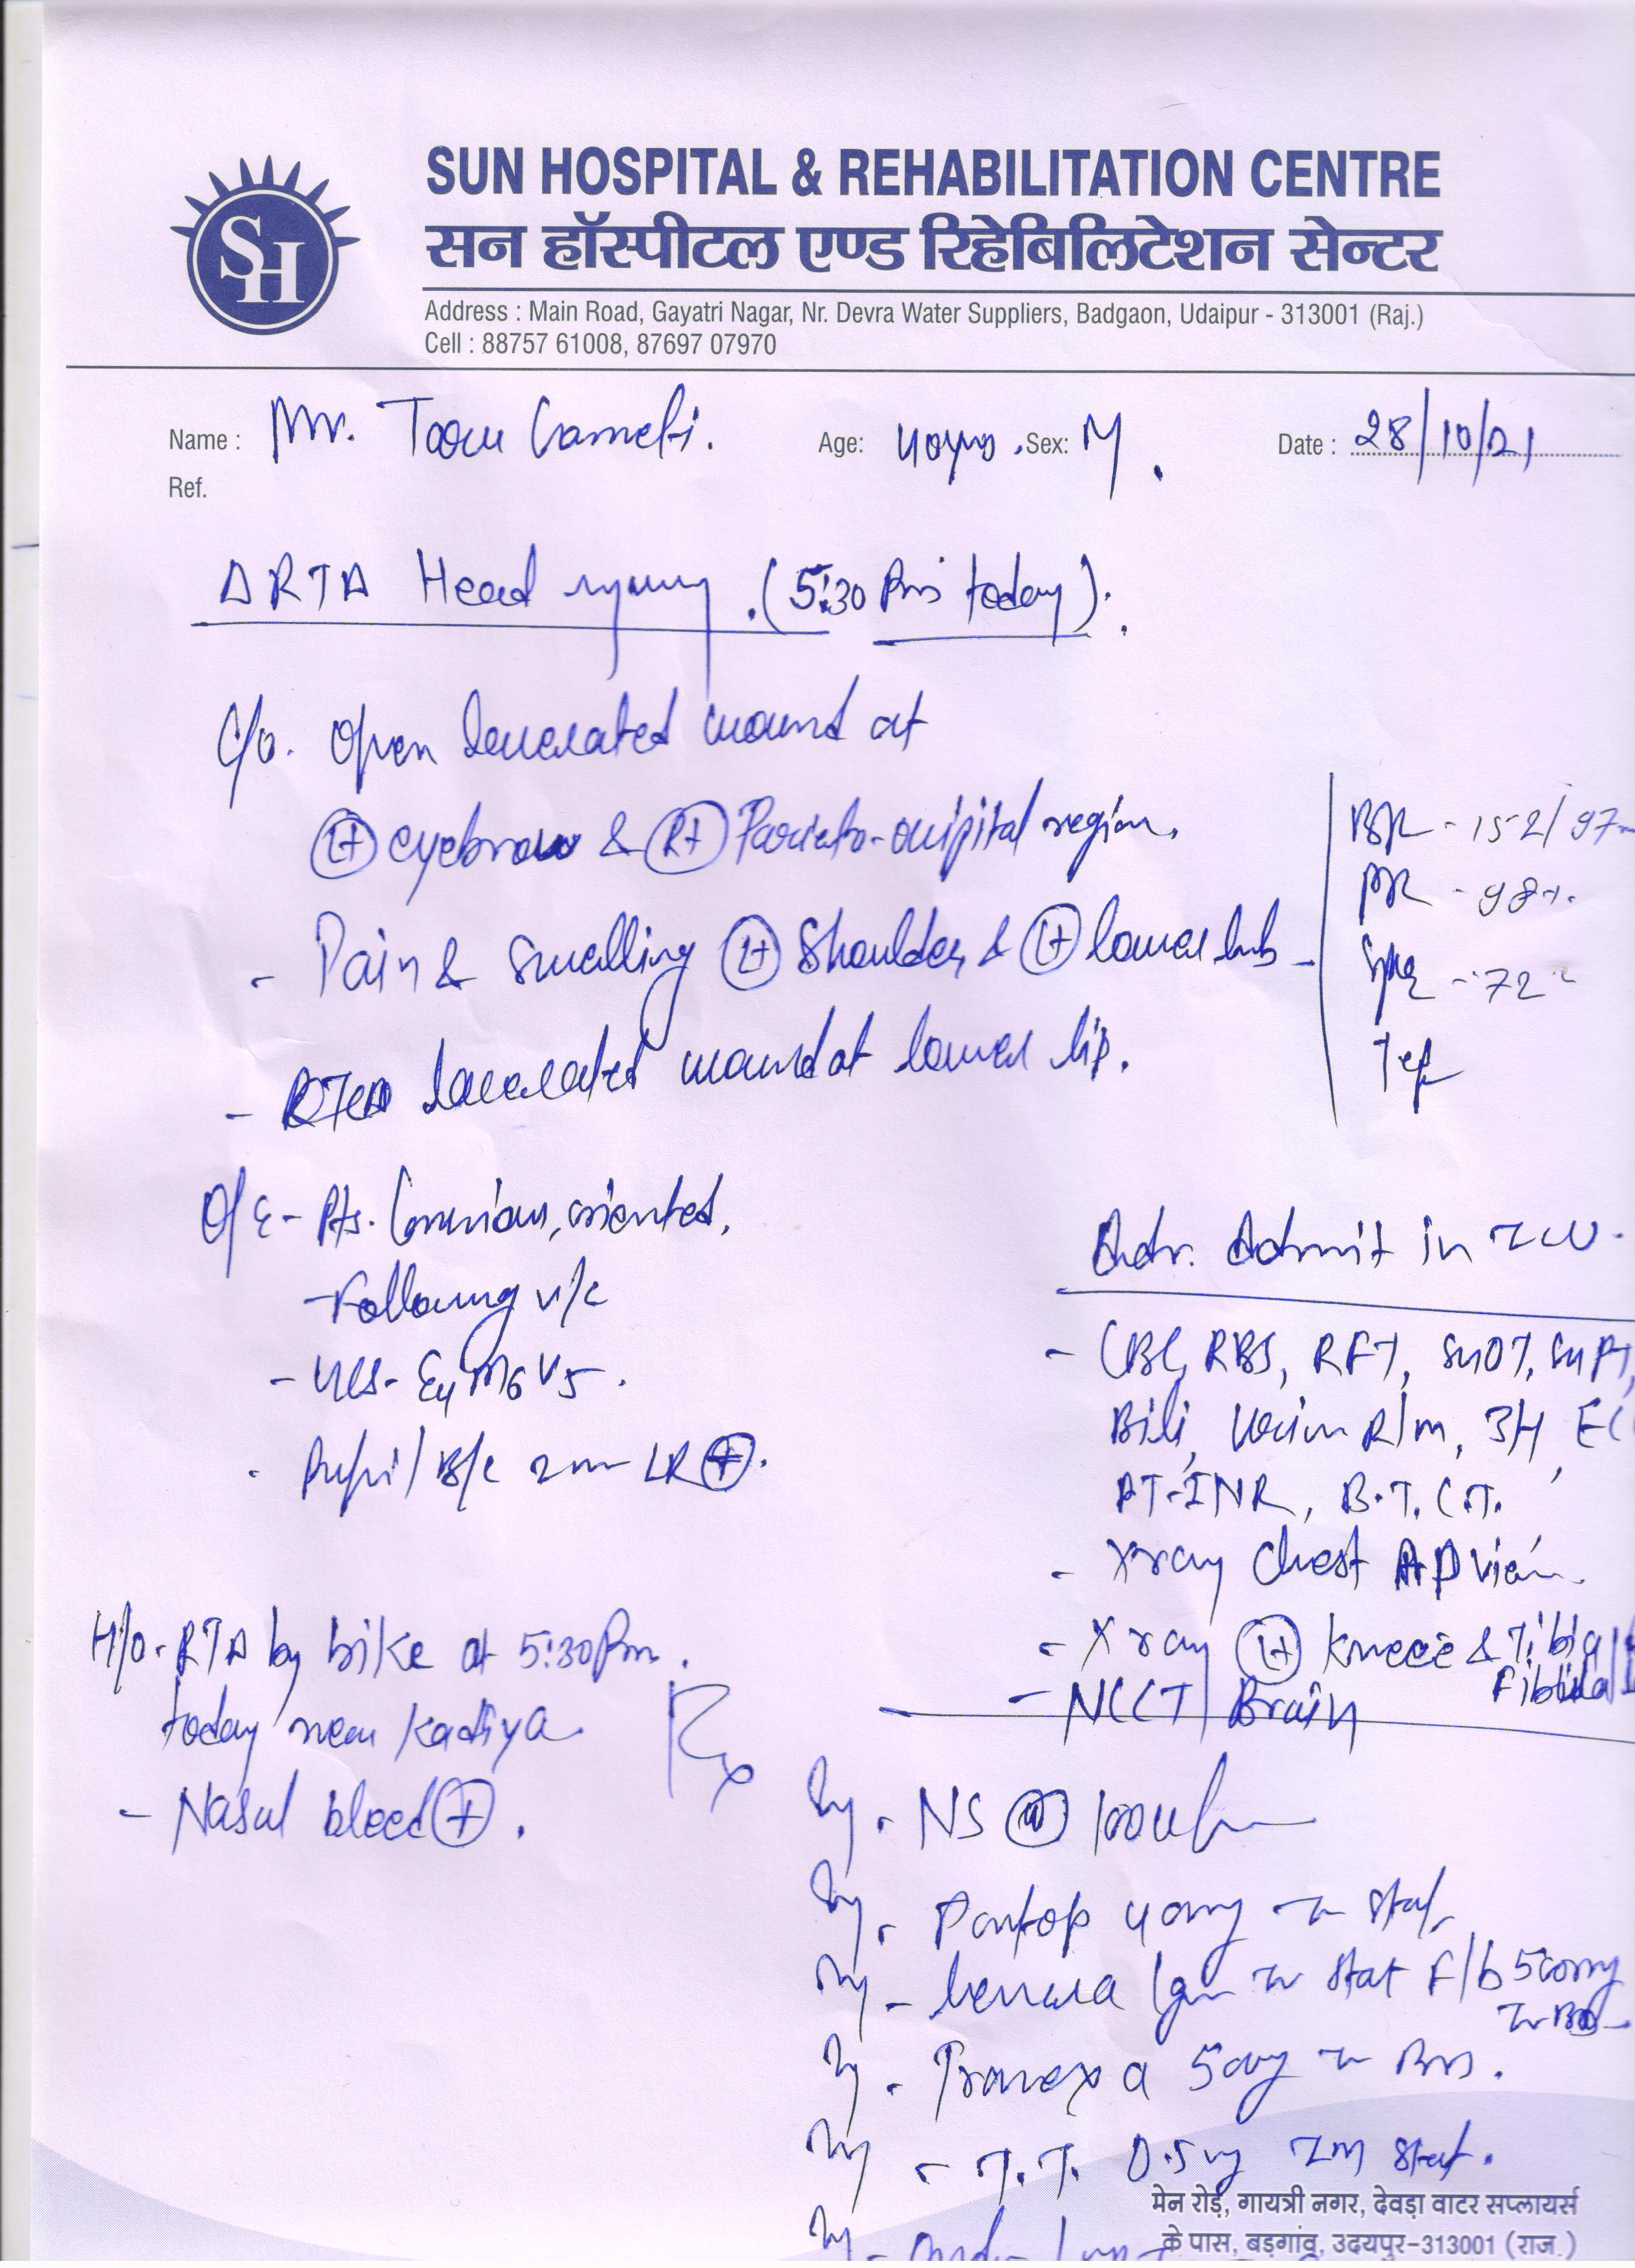 SH
SUN HOSPITAL & REHABILITATION CENTRE
सन हॉस्पीटल एण्ड रिहेबिलिटेशन सेन्टर
Address : Main Road, Gayatri Nagar, Nr. Devra Water Suppliers, Badgaon, Udaipur - 313001 (Raj.)
Cell : 88757 61008, 87697 07970
Name : Mr. Age: 40yrs . Sex: M . Date : 28/10/21
Ref.
Δ RTA Head injury . (5:30 Pm today).
C/o. Open lacerated wound at
(Lt) eyebrow & (Rt) Parieto-occipital region.
- Pain & Swelling (Lt) Shoulder, & (Lt) lower limb -
- lacerated wound at lower lip.
BP - 152/97
PR - 98
SpO2 - 72
Temp
O/E - Pts. Conscious, oriented,
- Following v/c
- GCS - E4 M6 V5 .
- Pupil B/L 2mm LR (+).
H/o - RTA by bike at 5:30 Pm .
today near Kadiya
- Nasal bleed (+) .
Adv. Admit in ICU .
- CBC, RBS, RFT, SGOT, SGPT,
Bili, Urine R/m, 3H, EC
PT-INR, B.T. C.T.
- Xray Chest AP view
- X ray (Lt) Kneee & Tibia
Fibula
- NCCT Brain
Rx
Inj . NS @ 100ml/hr
Inj . Pantop 40mg IV stat
Inj - Levera 1gm IV stat F/b 500mg
IV BD
Inj . Tranexa 500mg IV
Inj - T.T. 0.5 IM stat .
Inj -
मेन रोड़, गायत्री नगर, देवड़ा वाटर सप्लायर्स
के पास, बड़गांव, उदयपुर-313001 (राज.)